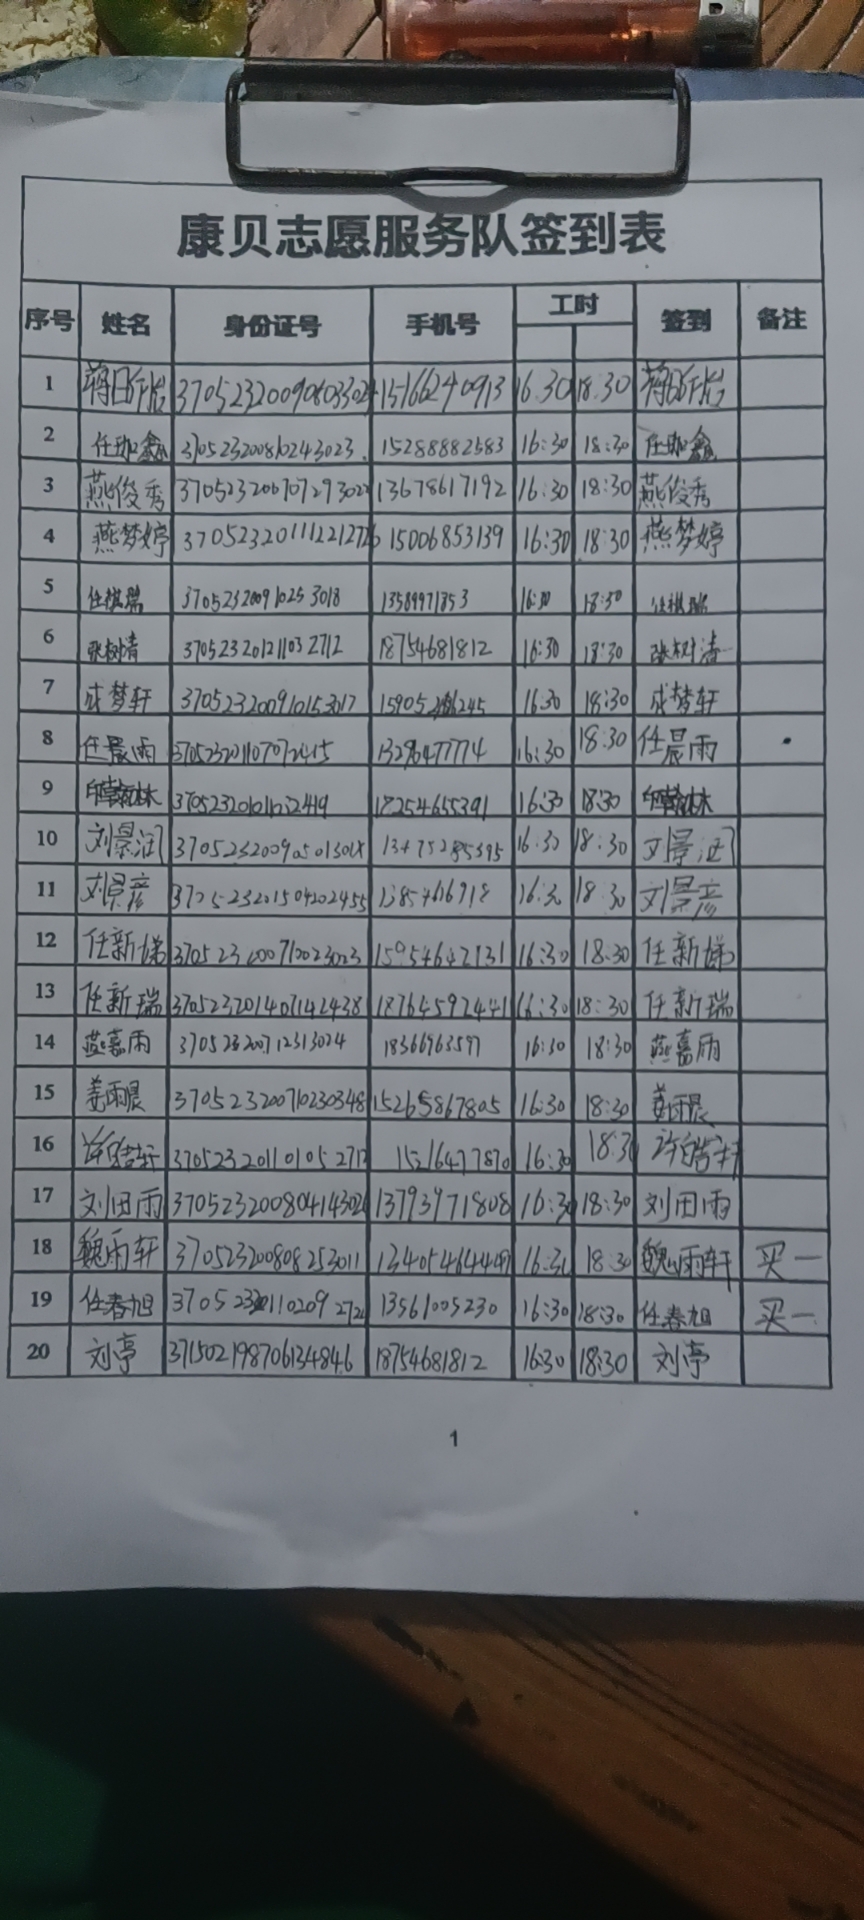 康贝志愿服务队签到表
序号 姓名 身份证号 手机号 工时 签到 备注
1 15166240913 16.30 18.30
2 370523200810243023 15288882583 16:30 18:30
3 燕俊秀 13678617192 16:30 18:30 燕俊秀
4 燕梦婷 15006853139 16:30 18:30 燕梦婷
5 任祺瑞 370523200910253018 16:30 18:30 任祺瑞
6 张树清 370523201211032712 18754681812 16:30 18:30 张树清
7 成梦轩 370523200910153017 16:30 18:30 成梦轩
8 任晨雨 370523201107072415 13296477774 16:30 18:30 任晨雨
9 18254655391 16:30 18:30
10 刘景润 13475285395 16:30 18:30 刘景润
11 刘景彦 370523201504202455 16:30 18:30 刘景彦
12 任新娣 370523200710023023 15954642131 16:30 18:30 任新娣
13 任新瑞 370523201407142438 18764592441 16:30 18:30 任新瑞
14 燕嘉雨 370523200712313024 18366963597 16:30 18:30 燕嘉雨
15 姜雨晨 370523200710230348 15265867805 16:30 18:30 姜雨晨
16 许皓轩 15216477870 16:30 18:30 许皓轩
17 刘田雨 13793971808 16:30 18:30 刘田雨
18 魏雨轩 370523200808253011 16:30 18:30 魏雨轩 买一
19 任春旭 13561005230 16:30 18:30 任春旭 买一
20 刘亭 371502198706134846 18754681812 16:30 18:30 刘亭
1